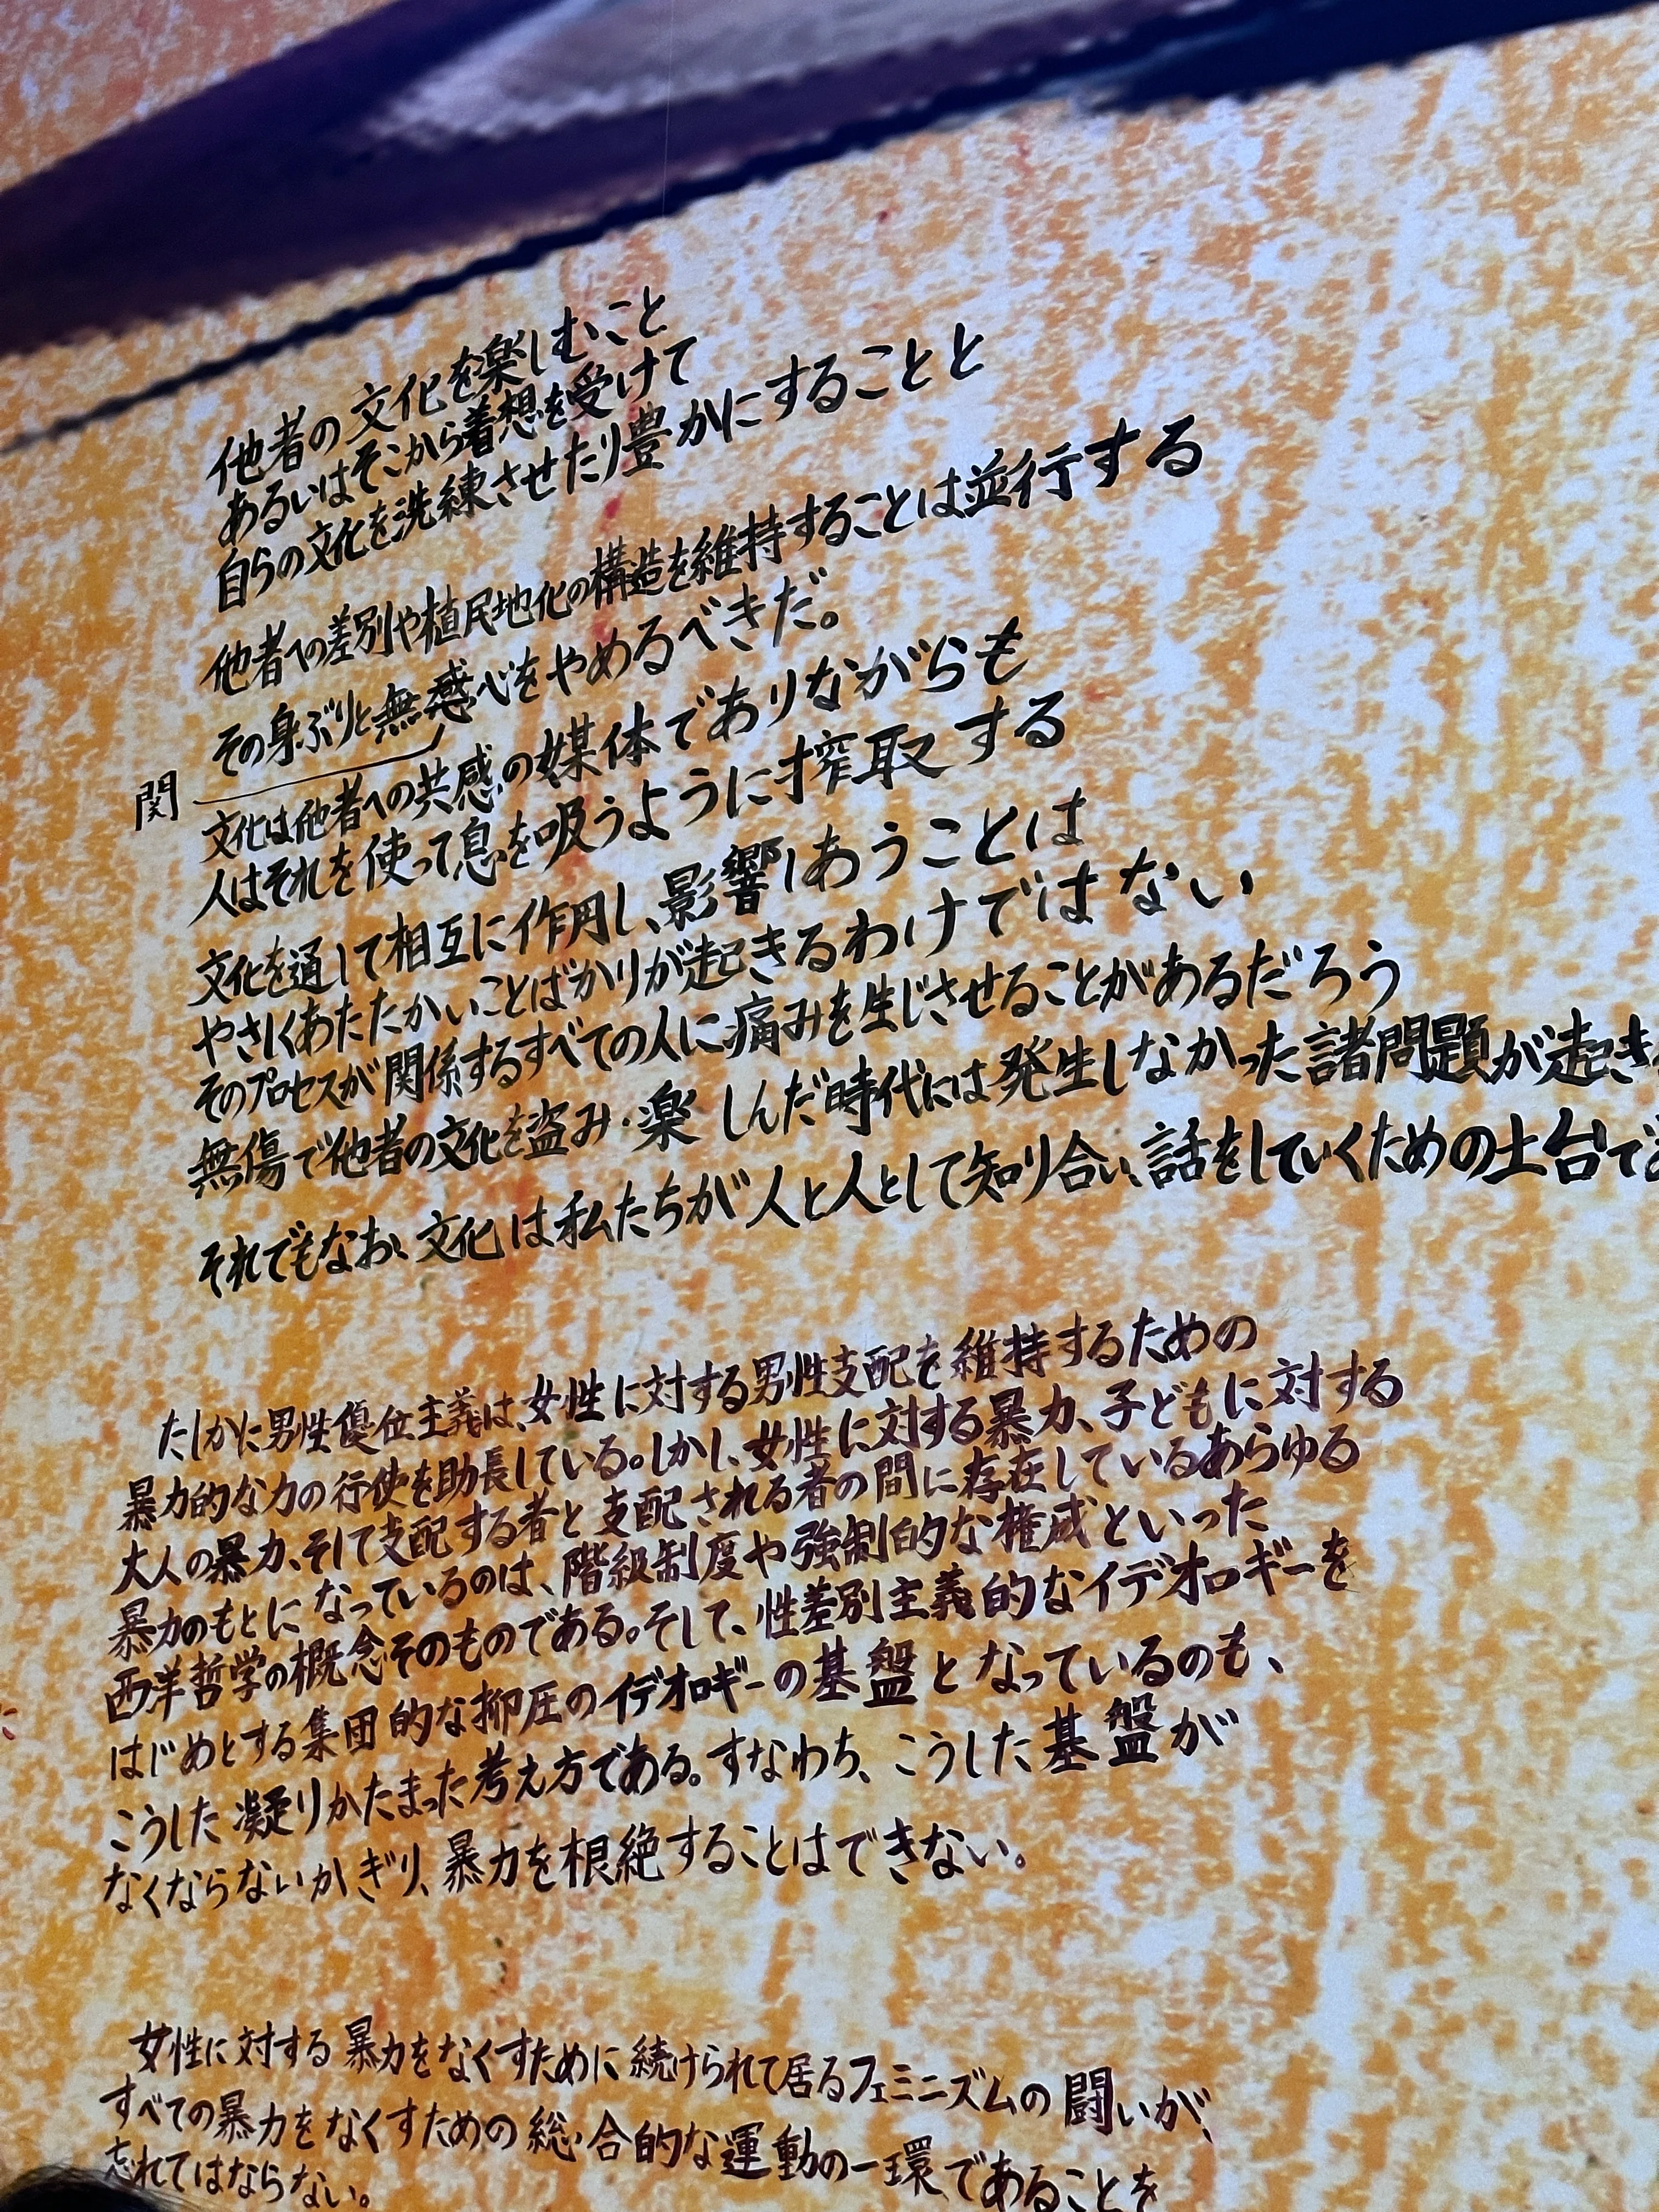 他者の文化を楽しむこと
あるいはそこから着想を受けて
自らの文化を洗練させたり豊かにすることと
他者への差別や植民地化の構造を維持することは並行する
その身ぶりと無感心をやめるべきだ。
関
文化は他者への共感の媒体でありながらも
人はそれを使って息を吸うように搾取する
文化を通して相互に作用し、影響しあうことは
やさしくあたたかいことばかりが起きるわけではない
そのプロセスが関係するすべての人に痛みを生じさせることがあるだろう
無傷で他者の文化を盗み・楽しんだ時代には発生しなかった諸問題が起き
それでもなお、文化は私たちが人と人として知り合い、話をしていくための土台で
たしかに男性優位主義は、女性に対する男性支配を維持するための
暴力的な力の行使を助長している。しかし、女性に対する暴力、子どもに対する
大人の暴力、そして支配する者と支配される者の間に存在しているあらゆる
暴力のもとになっているのは、階級制度や強制的な権威といった
西洋哲学の概念そのものである。そして、性差別主義的なイデオロギーを
はじめとする集団的な抑圧のイデオロギーの基盤となっているのも、
こうした凝りかたまった考え方である。すなわち、こうした基盤が
なくならないかぎり、暴力を根絶することはできない。
女性に対する暴力をなくすために続けられて居るフェミニズムの闘いが、
すべての暴力をなくすための総合的な運動の一環であることを
忘れてはならない。